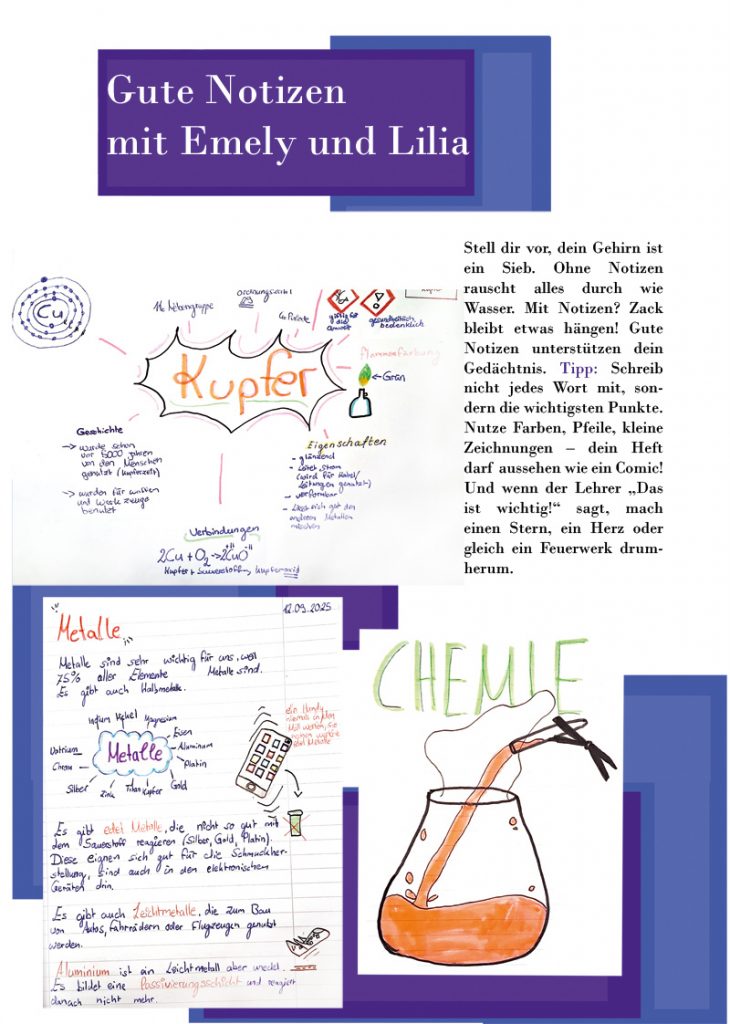 Gute Notizen
mit Emely und Lilia
Stell dir vor, dein Gehirn ist
ein Sieb. Ohne Notizen
rauscht alles durch wie
Wasser. Mit Notizen? Zack
bleibt etwas hängen! Gute
Notizen unterstützen dein
Gedächtnis. Tipp: Schreib
nicht jedes Wort mit, son-
dern die wichtigsten Punkte.
Nutze Farben, Pfeile, kleine
Zeichnungen – dein Heft
darf aussehen wie ein Comic!
Und wenn der Lehrer „Das
ist wichtig!“ sagt, mach
einen Stern, ein Herz oder
gleich ein Feuerwerk drum-
herum.
Cu
11. Nebengruppe
Ordnungszahl
giftig für
die
Umwelt
gesundheitlich
bedenklich
Kupfer
Flammenfärbung
← Grün
Geschichte
→ wurde schon
vor 5000 Jahren
von den Menschen
genutzt (Kupferzeit)
→ wurden für Waffen
und Werkzeuge
benutzt
Eigenschaften
- glänzend
- leitet Strom
(wird für Kabel/
Leitungen genutzt)
- verformbar
- lässt sich gut den
anderen Metallen
mischen
Verbindungen
2Cu + O₂ → 2CuO
Kupfer + Sauerstoff → Kupferoxid
12.09.2025
Metalle
Metalle sind sehr wichtig für uns, weil
75% aller Elemente Metalle sind.
Es gibt auch Halbmetalle.
Nickel Magnesium
Eisen
Natrium Metalle Aluminium
Chrom Platin
Silber Zink Titan Kupfer Gold
ein Handy
niemals in den
Müll werfen,
Es gibt edel Metalle, die nicht so gut mit
dem Sauerstoff reagieren (Silber, Gold, Platin).
Diese eignen sich gut für die Schmuckher-
stellung, sind auch in den elektronischen
Geräten drin.
Es gibt auch Leichtmetalle, die zum Bau
von Autos, Fahrrädern oder Flugzeugen genutzt
werden.
Aluminium ist ein Leichtmetall aber unedel.
Es bildet eine Passivierungsschicht und reagiert
danach nicht mehr.
CHEMIE